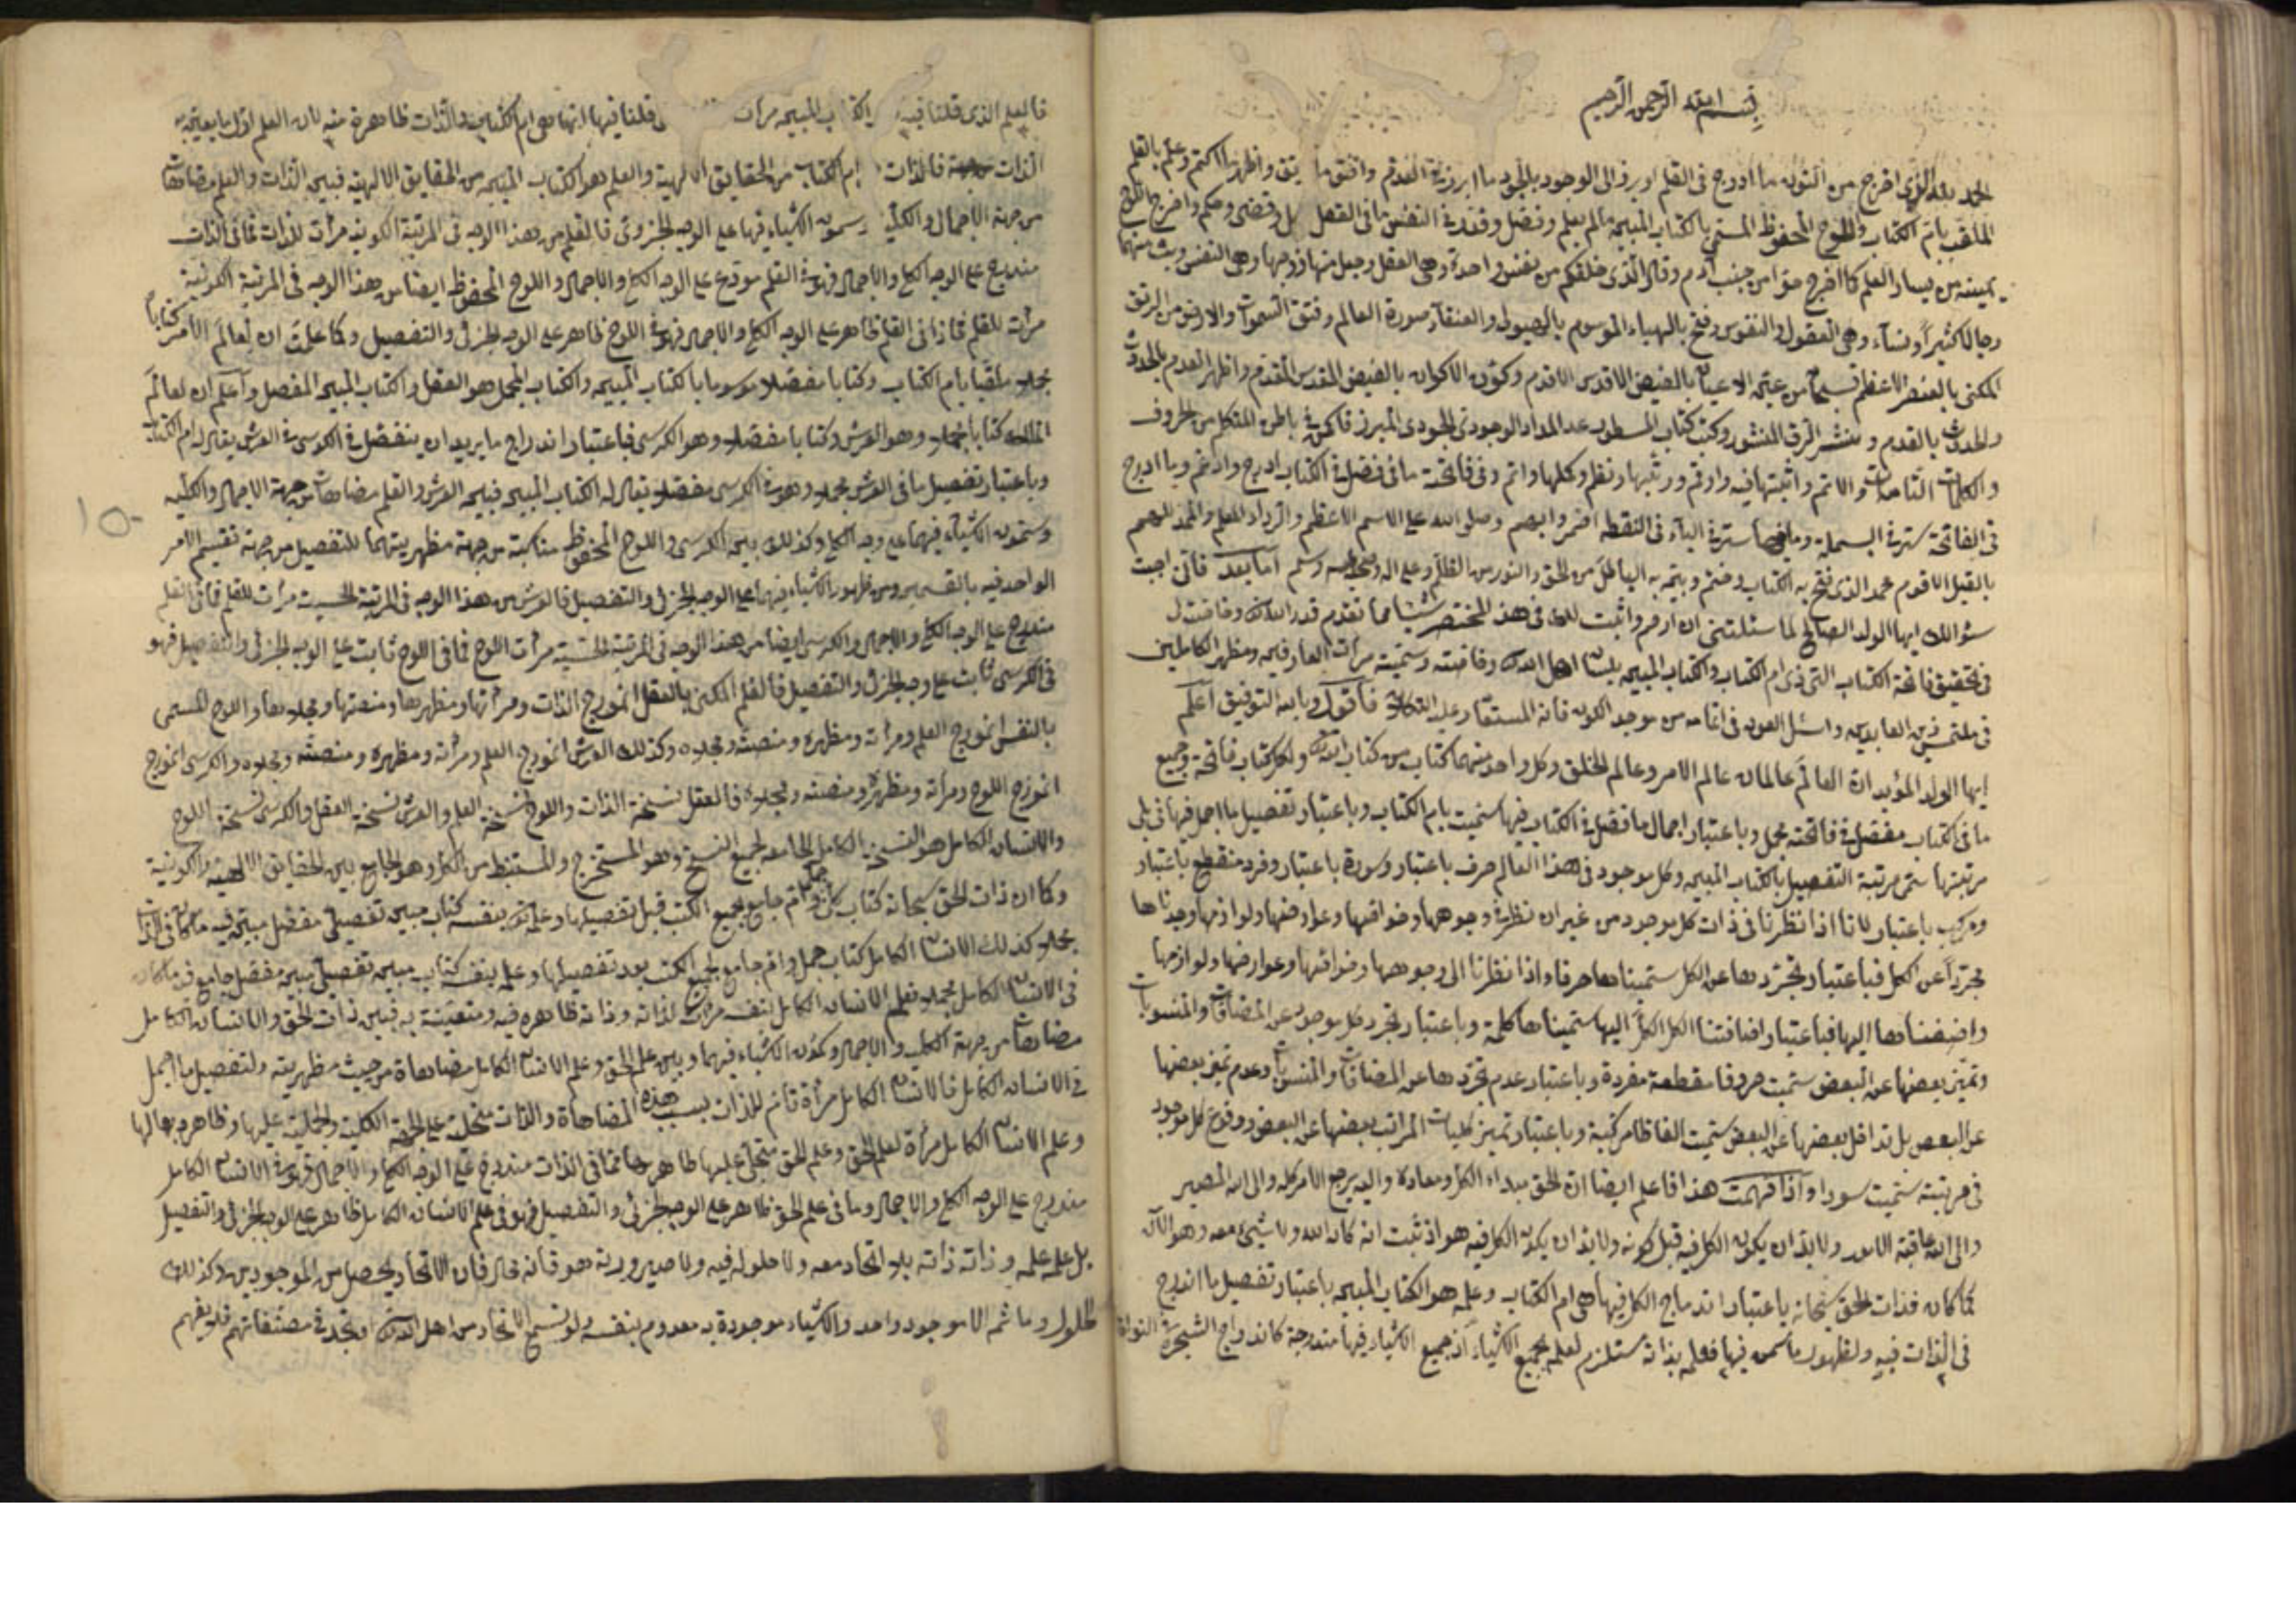 بسم الله الرحمن الرحيم
الحمد لله الذى اخرج من النون ما ادرج فى القلم وابرز الى الوجود بالجود ما ابرز فى القدم وافتق ما رتق واظهر ما اكتم وعلم بالقلم
الملقب بام الكتاب واللوح المحفوظ المسمى بالكتاب المبين ما لم يعلم وفصل وقدر فى النفس ما فى العقل وقضى وحكم واخرج اللوح
بيمينه من يسار القلم كما اخرج حوا من جنب آدم وقال الذى خلقكم من نفس واحدة وهى العقل وجعل منها زوجها وهى النفس وبث منهما
رجالا كثيرا ونساء وهى العقول والنفوس وفتح بالهباء الموسوم بالهيولى والعنقاء صورة العالم وفتق السموات والارض من الرتق
المكنى بالعنصر الاعظم فسبحان من عين الاعيان بالفيض الاقدس الاقدم وكون الاكوان بالفيض المقدس المقدم واظهر القدم بالحدوث
والحدوث بالقدم ونشر الرق المنشور وكتب كتاب المسطور عند المداد الوجودى الجودى المبرز فاكمن فى باطن المتكلم من الحروف
والكلمات التامات والاتم واثبتها فيه وارقم ورتبها ونظم وكملها واتم وفى فاتحة ما فى فصل فى الكتاب ادرج وادغم وما ادرج
فى الفاتحة ستر فى البسملة وما فيها ستر فى الباء فى النقطة اضمر وابهم وصلى الله على الاسم الاعظم والرداء المعلم والممد للهمم
بالقيل الاقوم محمد الذى فتح به الكتاب وختم وبين به الباطل من الحق والنور من الظلم وعلى اله وصحبه وسلم اما بعد فانى اجبت
سؤالك ايها الولد الصالح لما سئلتنى ان ارقم واثبت لك فى هذا المختصر شيئا مما تقدم
فى تحقيق فاتحة الكتاب التى هى ام الكتاب والكتاب المبين بلسان اهل الله وسميته مرآة العارفين ومظهر الكاملين
فى ملتمس زين العابدين واسئل العون فى اتمامه من موجد الكون فانه المستعان وعليه التكلان فاقول وبالله التوفيق اعلم
ايها الولد المؤيد ان العالم عالمان عالم الامر وعالم الخلق وكل واحد منهما كتاب من كتاب الله ولكل كتاب فاتحة وجميع
ما فى الكتاب مفصل فى فاتحته مجمل وباعتبار اجمال ما فصل فى الكتاب فيها سميت بام الكتاب وباعتبار تفصيل ما اجمل فيها فى
مرتبتها سمى مرتبة التفصيل بالكتاب المبين وكل موجود فى هذا العالم حرف باعتبار وسورة باعتبار وفرد منقطع باعتبار
ومركب باعتبار لانا اذا نظرنا فى ذات كل موجود من غير ان ننظر فى وجوهها وخواصها وعوارضها ولوازمها وجدناها
مجردا عن الكل فباعتبار تجردها عن الكل سميناها حرفا واذا نظرنا الى وجوهها وخواصها وعوارضها ولوازمها
واضفناها اليها فباعتبار اضافتنا الكل اليها سميناها كلمة وباعتبار تجرد كل موجود عن المضافات والمنسوبات
وتميز بعضها عن البعض سميت حروفا مقطعة مفردة وباعتبار عدم تجردها عن المضافات والمنسوبات وعدم تميز بعضها
عن البعض بل تداخل بعضها عن البعض سميت الفاظا مركبة وباعتبار تميز كليات المراتب بعضها عن البعض ووقوع كل موجود
فى مرتبته سميت سورا واذا فهمت هذا فاعلم ايضا ان الحق مبداء الكل ومعاده واليه يرجع الامر كله والى الله المصير
والى الله عاقبة الامور ولا بد ان يكون الكل فيه قبل كونه ولا بد ان يكون الكل فيه هو اذ ثبت انه كان الله ولا شيء معه وهو الآن
كما كان فذات الحق سبحانه باعتبار اندماج الكل فيها هى ام الكتاب وعلمه هو الكتاب المبين باعتبار تفصيل ما اندرج
فى الذات فيه ولظهور ما كمن فيها فعلمه بذاته مستلزم لعلمه بجميع الاشياء اذ جميع الاشياء فيها مندرجة كاندراج الشجرة فى النواة
فالعلم الذى قلنا فيه الكتاب المبين مرآت قلنا فيها انها هى ام الكتاب والذات ظاهرة فيه لان العلم اول ما يعين به
الذات فالذات ام الكتاب من الحقايق الالهية والعلم هو الكتاب المبين من الحقايق الالهية فبين الذات والعلم مضاهات
من جهة الاجمال والكلية الاشياء فيها على الوجه الجزوى فالقلم من هذا الوجه فى المرتبة الكونية مرآت للذات فما فى الذات
مندرج على الوجه الكلى والاجمال فهو فى القلم مودع على الوجه الكلى والاجمال واللوح المحفوظ ايضا من هذا الوجه فى المرتبة الكونية
مرآت للعلم فما فى القلم ظاهر على الوجه الكلى والاجمال فهو فى اللوح ظاهر على الوجه الجزئى والتفصيل وكما علمت ان لعالم الامر كتابا
مجملا ملقبا بام الكتاب وكتابا مفصلا موسوما بالكتاب المبين والكتاب المجمل هو العقل والكتاب المبين المفصل واعلم ان لعالم
الملك كتابا مجملا وهو العرش وكتابا مفصلا وهو الكرسى فباعتبار اندراج ما يريد ان ينفصل فى الكرسى فى العرش يقال له ام الكتاب
وباعتبار تفصيل ما فى العرش مجملا وهو فى الكرسى مفصلا يقال له الكتاب المبين فبين العرش والقلم مضاهات من جهة الاجمال والكلية
الاشياء فيهما على وجه الكلى وكذلك بين الكرسى واللوح المحفوظ من جهة مظهريتهما للتفصيل من جهة تقسيم الامر
الواحد فيه بالقسمين ومن ظهور الاشياء فيهما على الوجه الجزئى والتفصيل فالعرش من هذا الوجه فى المرتبة الحسية مرآت للقلم فما فى القلم
مندرج على الوجه الكلى والاجمال والكرسى ايضا من هذا الوجه فى المرتبة الحسية مرآت اللوح فما فى اللوح ثابت على الوجه الجزئى والتفصيل فهو
فى الكرسى ثابت على وجه الجزئى والتفصيل فالقلم المكنى بالعقل انموزج الذات ومرآتها ومظهرها ومنصتها ومجلاها واللوح المسمى
بالنفس انموزج العلم ومرآته ومظهره ومنصته ومجلاه وكذلك العرش انموزج العلم ومرآته ومظهره ومنصته ومجلاه والكرسى انموزج
انموزج اللوح ومرآته ومظهره ومنصته ومجلاه فالعقل نسخة الذات واللوح نسخة العلم والعرش نسخة العقل والكرسى نسخة اللوح
والانسان الكامل هو النسخة الكامل الجامعة لجميع النسخ وهو المستخرج والمستنبط من الكل وهو الجامع بين الحقايق الالهية والكونية
وكما ان ذات الحق سبحانه كتاب جملى وام جامع لجميع الكتب قبل تفصيلها وعلمه بنفسه كتاب مبين تفصيلى مفصل مبين فيه ما كان فى الذات
مجملا كذلك الانسان الكامل كتاب جملى وام جامع لجميع الكتب بعد تفصيلها وعلمه بنفسه كتاب مبين تفصيلى مبين مفصل جامع فيه ما كان
فى الانسان الكامل مجملا فعلم الانسان الكامل بنفسه مرآت لذاته وذاته ظاهره فيه ومتعينة به فبين ذات الحق والانسان الكامل
مضاهات من جهة الكلية والاجمال وكون الاشياء فيهما وبين علم الحق وعلم الانسان الكامل مضاهاة من حيث مظهريته ولتفصيل ما اجمل
فى الانسان الكامل فالانسان الكامل مرآة تام للذات بسبب هذه المضاهاة والذات متجلية على الجهة الكلية والجملية عليها وظاهره بها لها
وعلم الانسان الكامل مرآة لعلم الحق وعلم الحق متجلى عليها ظاهر بها فما فى الذات مندرج على الوجه الكلى والاجمال فهو فى الانسان الكامل
مندرج على الوجه الكلى والاجمال وما فى علم الحق ظاهر على الوجه الجزئى والتفصيل فهو فى علم الانسان الكامل ظاهر على الوجه الجزئى والتفصيل
بل علمه علمه وذاته ذاته بلا اتحاد معه ولا حلول فيه ولا صيرورة هو فانه محال فان الاتحاد يحصل من الموجودين وكذلك
الحلول وما ثمه الا موجود واحد والاشياء موجودة به معدوم بنفسه ولو تسمع الاتحاد من اهل الله او تجد فى مصنفاتهم فلا يفهم
١٥٠